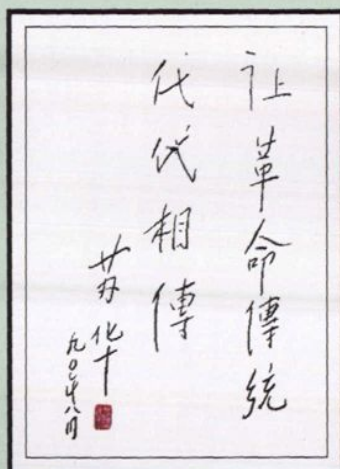 让革命傳統
代代相傳
苏华
九〇年八月